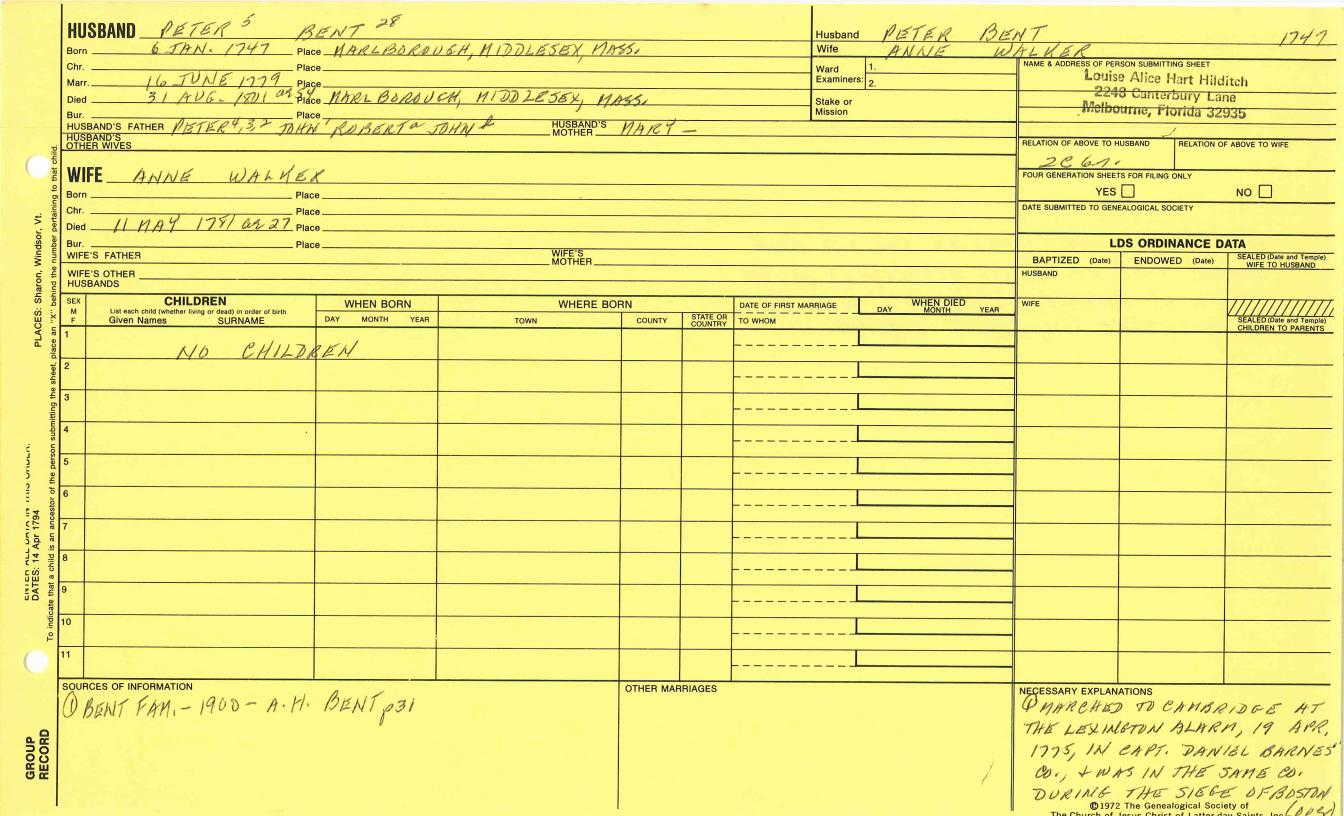 HUSBAND PETER 5 BENT 28
Born 6 JAN. 1747 Place MARLBOROUGH, MIDDLESEX, MASS.
Chr. Place
Marr. 16 JUNE 1779 Place
Died 31 AUG. 1801 ae 54 Place MARLBOROUGH, MIDDLESEX, MASS.
Bur. Place
HUSBAND'S FATHER PETER 4,3,2 JOHN 1 ROBERT a JOHN b HUSBAND'S MOTHER MARY —
HUSBAND'S OTHER WIVES
WIFE ANNE WALKER
Born Place
Chr. Place
Died 11 MAY 1781 ae 27 Place
Bur. Place
WIFE'S FATHER WIFE'S MOTHER
WIFE'S OTHER HUSBANDS
Husband PETER BENT 1747
Wife ANNE WALKER
Ward Examiners: 1.
2.
Stake or Mission
NAME & ADDRESS OF PERSON SUBMITTING SHEET
Louise Alice Hart Hilditch
2248 Canterbury Lane
Melbourne, Florida 32935
RELATION OF ABOVE TO HUSBAND RELATION OF ABOVE TO WIFE
2C 6r.
FOUR GENERATION SHEETS FOR FILING ONLY
YES NO
DATE SUBMITTED TO GENEALOGICAL SOCIETY
LDS ORDINANCE DATA
BAPTIZED (Date) ENDOWED (Date) SEALED (Date and Temple) WIFE TO HUSBAND
HUSBAND
WIFE
SEALED (Date and Temple) CHILDREN TO PARENTS
SEX M F CHILDREN WHEN BORN WHERE BORN DATE OF FIRST MARRIAGE WHEN DIED
List each child (whether living or dead) in order of birth
Given Names SURNAME DAY MONTH YEAR TOWN COUNTY STATE OR COUNTRY TO WHOM DAY MONTH YEAR
1 NO CHILDREN
2
3
4
5
6
7
8
9
10
11
SOURCES OF INFORMATION
① BENT FAM. - 1900 - A.H. BENT p31
OTHER MARRIAGES
NECESSARY EXPLANATIONS
① MARCHED TO CAMBRIDGE AT
THE LEXINGTON ALARM, 19 APR.
1775, IN CAPT. DANIEL BARNES'
CO., & WAS IN THE SAME CO.
DURING THE SIEGE OF BOSTON
(OVER)
©1972 The Genealogical Society of
The Church of Jesus Christ of Latter-day Saints, Inc.
ENTER ALL DATA IN THIS ORDER:
DATES: 14 Apr 1794
PLACES: Sharon, Windsor, Vt.
To indicate that a child is an ancestor of the person submitting the sheet, place an "X" behind the number pertaining to that child.
GROUP
RECORD